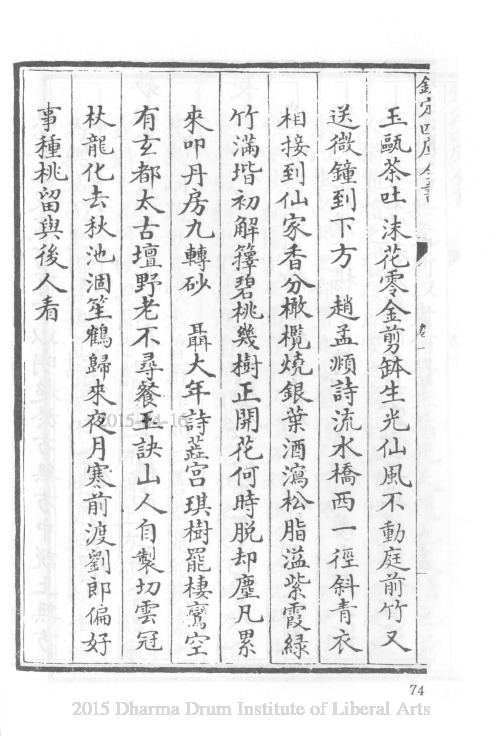 欽定四庫全書
玉甌茶吐沫花零金剪缽生光仙風不動庭前竹又
送微鐘到下方　趙孟頫詩流水橋西一徑斜青衣
相接到仙家香分橄欖燒銀葉酒瀉松脂溢紫霞綠
竹滿堦初解籜碧桃幾樹正開花何時脱却塵凡累
來叩丹房九轉砂　聶大年詩蘂宮琪樹罷棲鸞空
有玄都太古壇野老不尋餐玉訣山人自製切雲冠
杖龍化去秋池涸笙鶴歸來夜月寒前渡劉郎偏好
事種桃留與後人看
2015-04-16
74
2015 Dharma Drum Institute of Liberal Arts